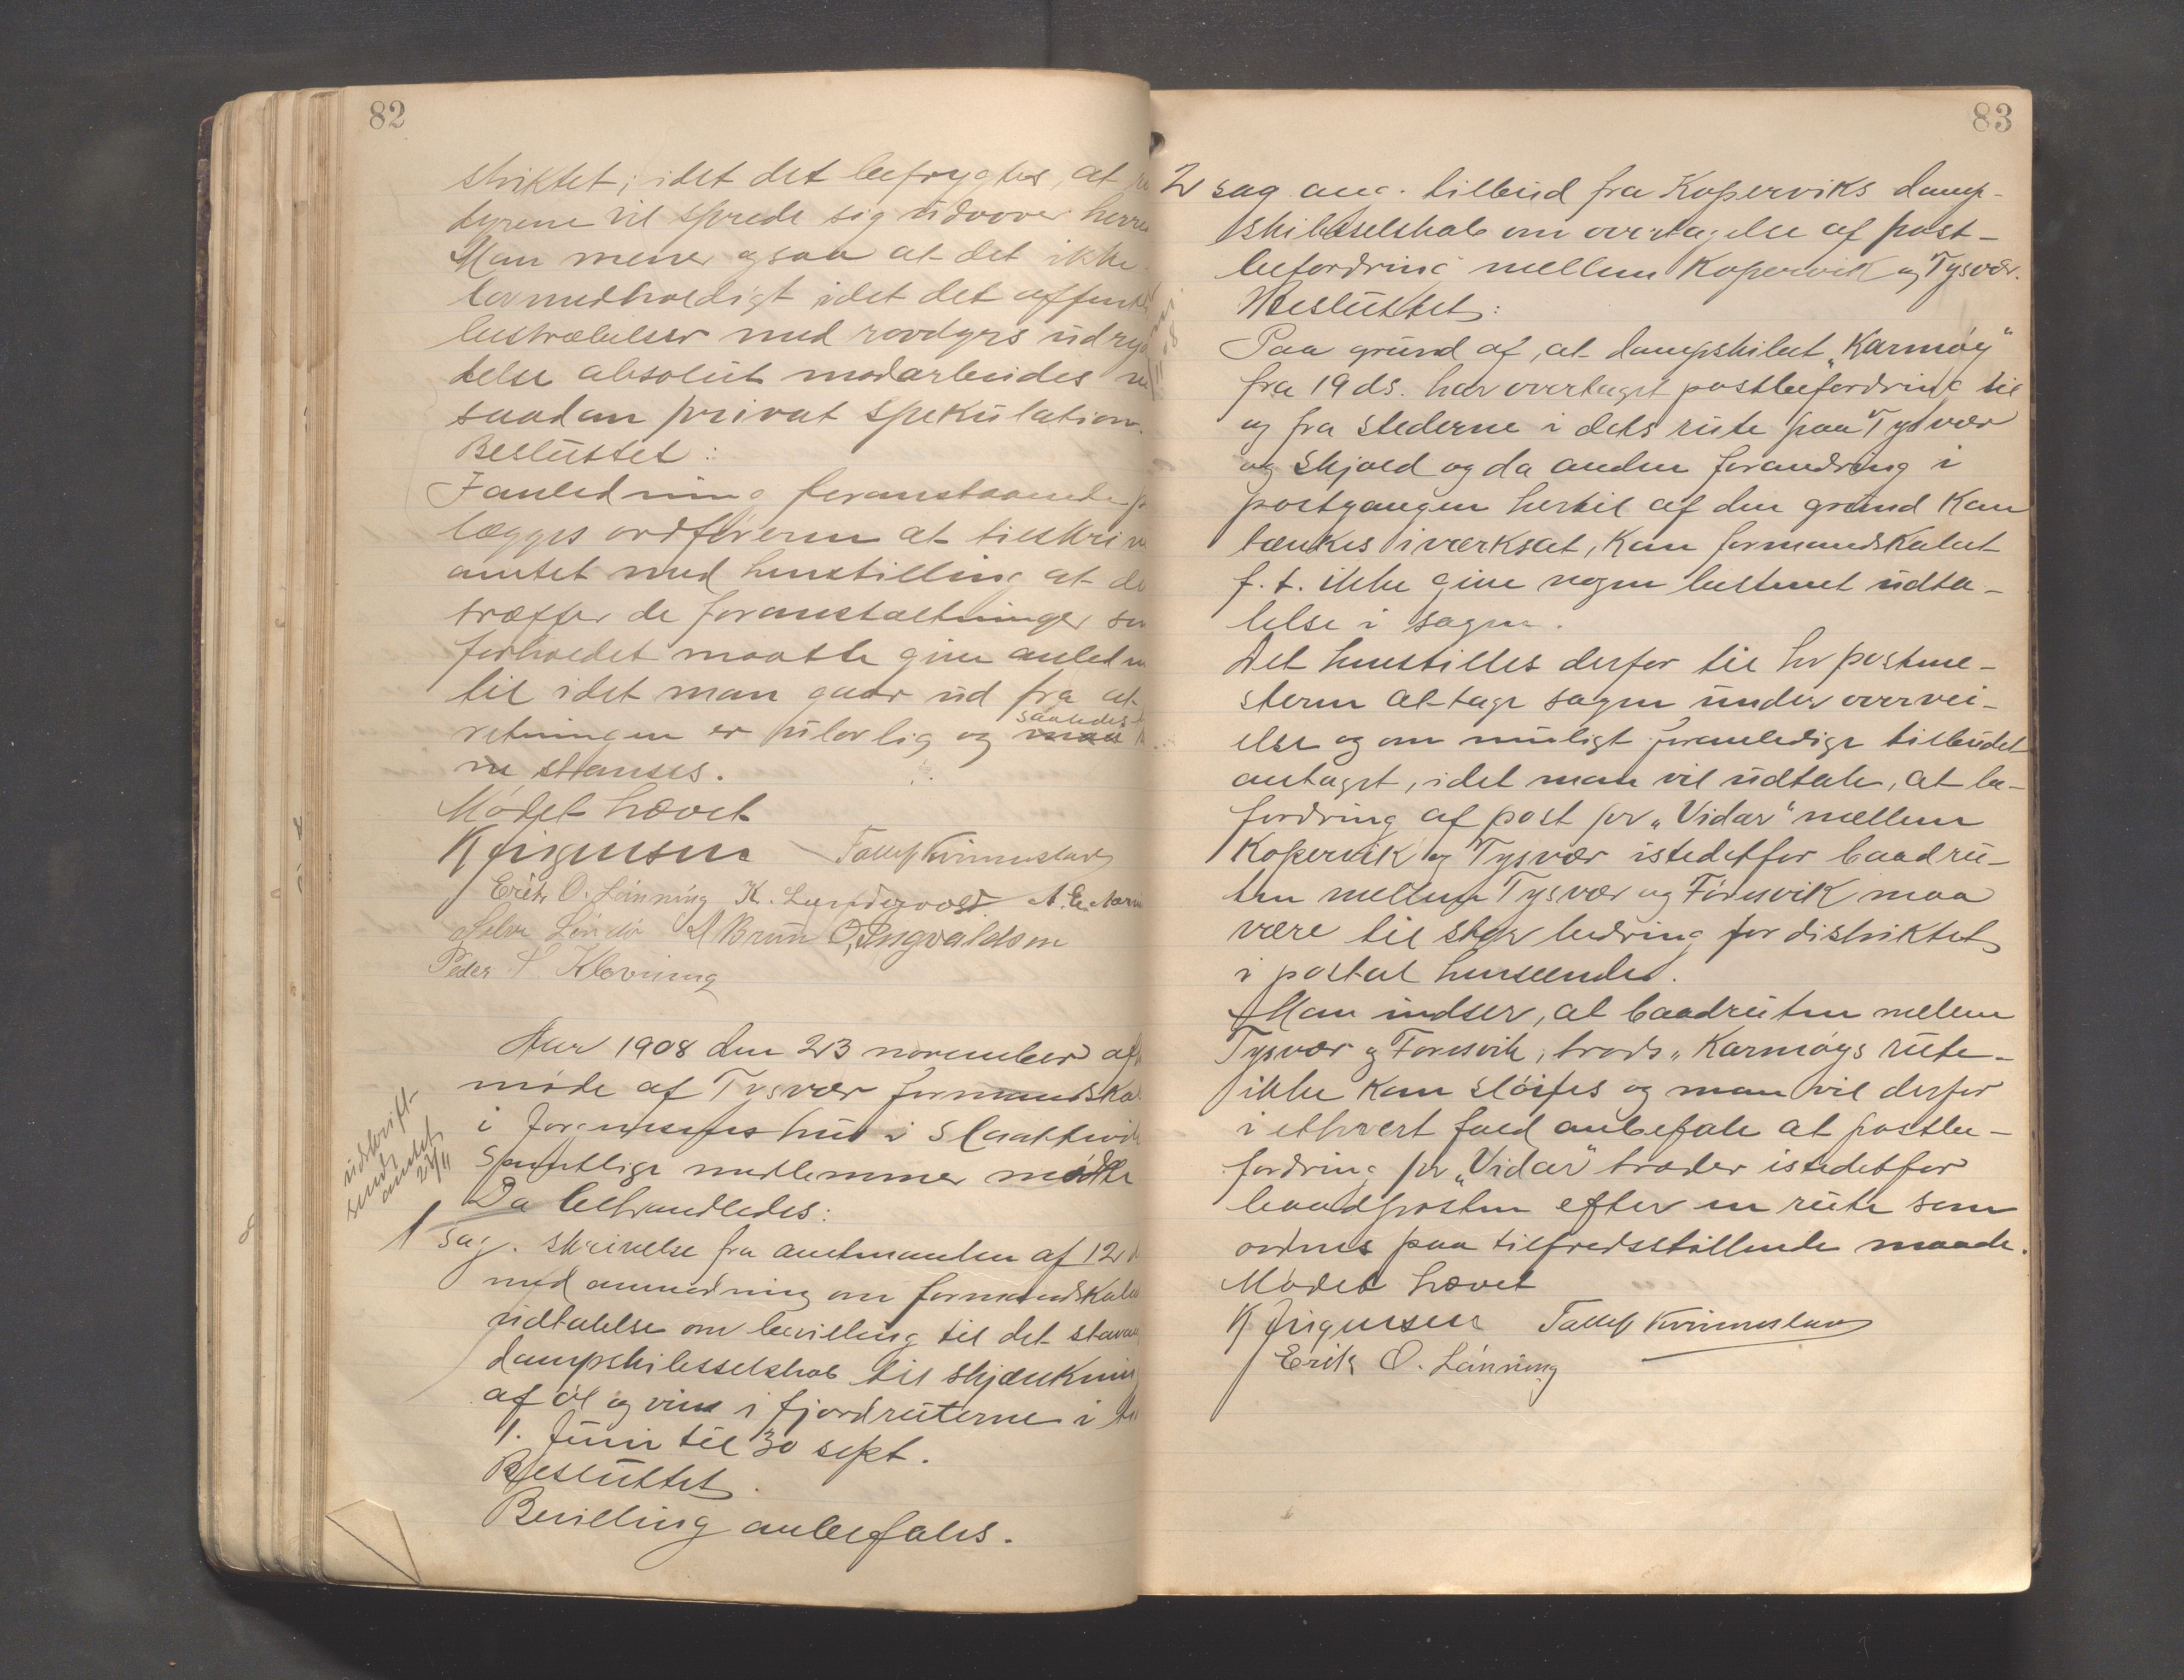 82
striktet; idet det befrygtes, at
dyrene vil sprede sig udover herre
Man mener ogsaa at det ikke
lovmedholdigt idet det offent
bestræbelser med rovdyrs udryd
telse absolut modarbeides
saadan privat spekulation.
Besluttet:
I anledning foranstaaende p
lægges ordføreren at tilskri
amtet med henstilling at de
træffer de foranstaltninger so
forholdet maatte give anledn
til idet man gaar ud fra at
retningen er ulovlig og saaledes
stanses.
Mødet hævet
K Jørgensen
Erik O. Lønning K. Lundervold
A Brun O. Ingvaldsen
Peder S. Klovning
Aar 1908 den 23 november af
møde af Tysvær formandska
i Jørgensens hus i Slaattevik
Samtlige medlemmer mødte
Da behandledes:
udskrift
sendt
amtet
1 sag. skrivelse fra amtmanden af 12 d
med anmodning om formandskabe
udtalelse om bevilling til det stavan
dampskibsselskab til skjænkning
af øl og vin i fjordruterne i
1. Juni til 30 sept.
Besluttet.
Bevilling anbefales.
83
2 sag ang. tilbud fra Koperviks damp-
skibsselskab om overtagelse af post-
befordring mellem Kopervik og Tysvær.
Besluttet:
Paa grund af, at dampskibet "Karmøy"
fra 19 ds. har overtaget postbefordring til
og fra stederne i dets rute paa Tysvær
og Skjold og da anden forandring i
postgangen hertil af den grund kan
tænkes iværksat, kan formandskabet
f. t. ikke give nogen bestemt udta-
lelse i sagen.
Det henstilles derfor til hr postme-
steren at tage sagen under overvei-
else og om muligt foranledige tilbudet
antaget, idet man vil udtale, at be-
fordring af post per "Vidar" mellem
Kopervik og Tysvær istedetfor baadru-
ten mellem Tysvær og Føresvik maa
være til stor bedring for distriktet
i postal henseende.
Man indser, at baadruten mellem
Tysvær og Føresvik, trods "Karmøys rute-
ikke kan sløifes og man vil derfor
i ethvert fald anbefale at postbe-
fordring per "Vidar" træder istedetfor
baadposten efter en rute som
ordnes paa tilfredsstillende maade.
Mødet hævet
K Jørgensen
Erik O. Lønning